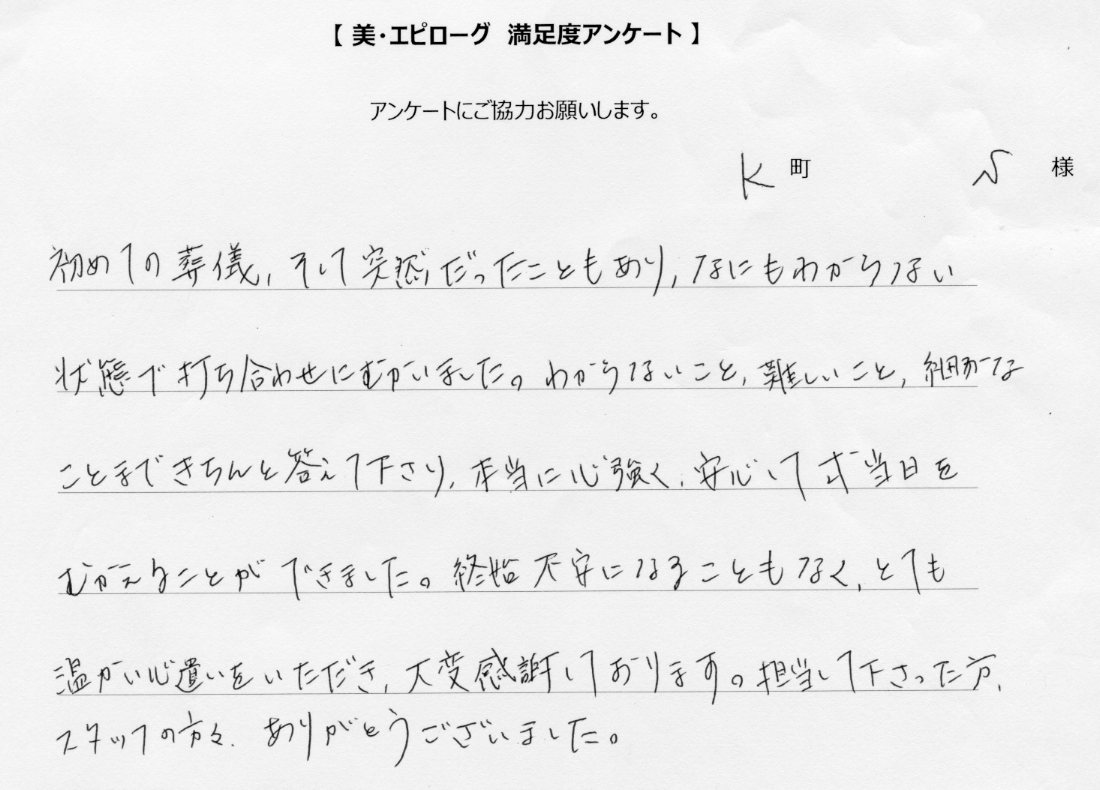 【 美・エピローグ 満足度アンケート 】
アンケートにご協力お願いします。
K 町 S 様
初めての葬儀、そして突然だったこともあり、なにもわからない
状態で打ち合わせにむかいました。わからないこと、難しいこと、細かな
ことまできちんと答えて下さり、本当に心強く、安心して式当日を
むかえることができました。終始不安になることもなく、とても
温かい心遣いをいただき、大変感謝しております。担当して下さった方、
スタッフの方々、ありがとうございました。